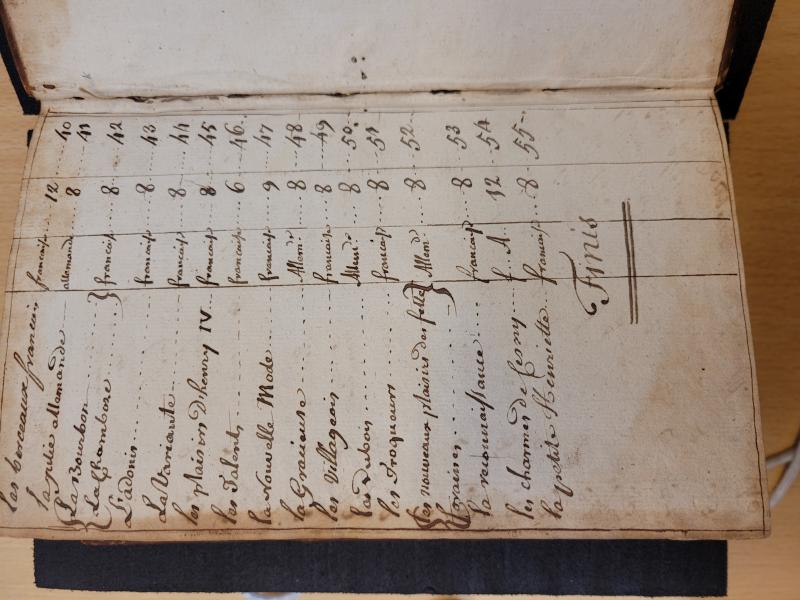 les berceaux francais francaise 12 40
la jolie allemande allemande 8 41
La Bourbon
La Chambore francaise 8 42
L'adonis francaise 8 43
La Variante francaise 8 44
les plaisirs D'henry IV francaise 8 45
les Talents francaise 6 46
la Nouvelle Mode francaise 9 47
la Gracieuse Allemde 8 48
les Villageois francaise 8 49
les Dubois Allemde 8 50
les Troqueurs francaise 8 51
les nouveaux plaisirs des fetes Allemde 8 52
la reconnaissance francaise 8 53
les charmes de f. A. 12 54
la petite Henriette francaise 8 55
Finis